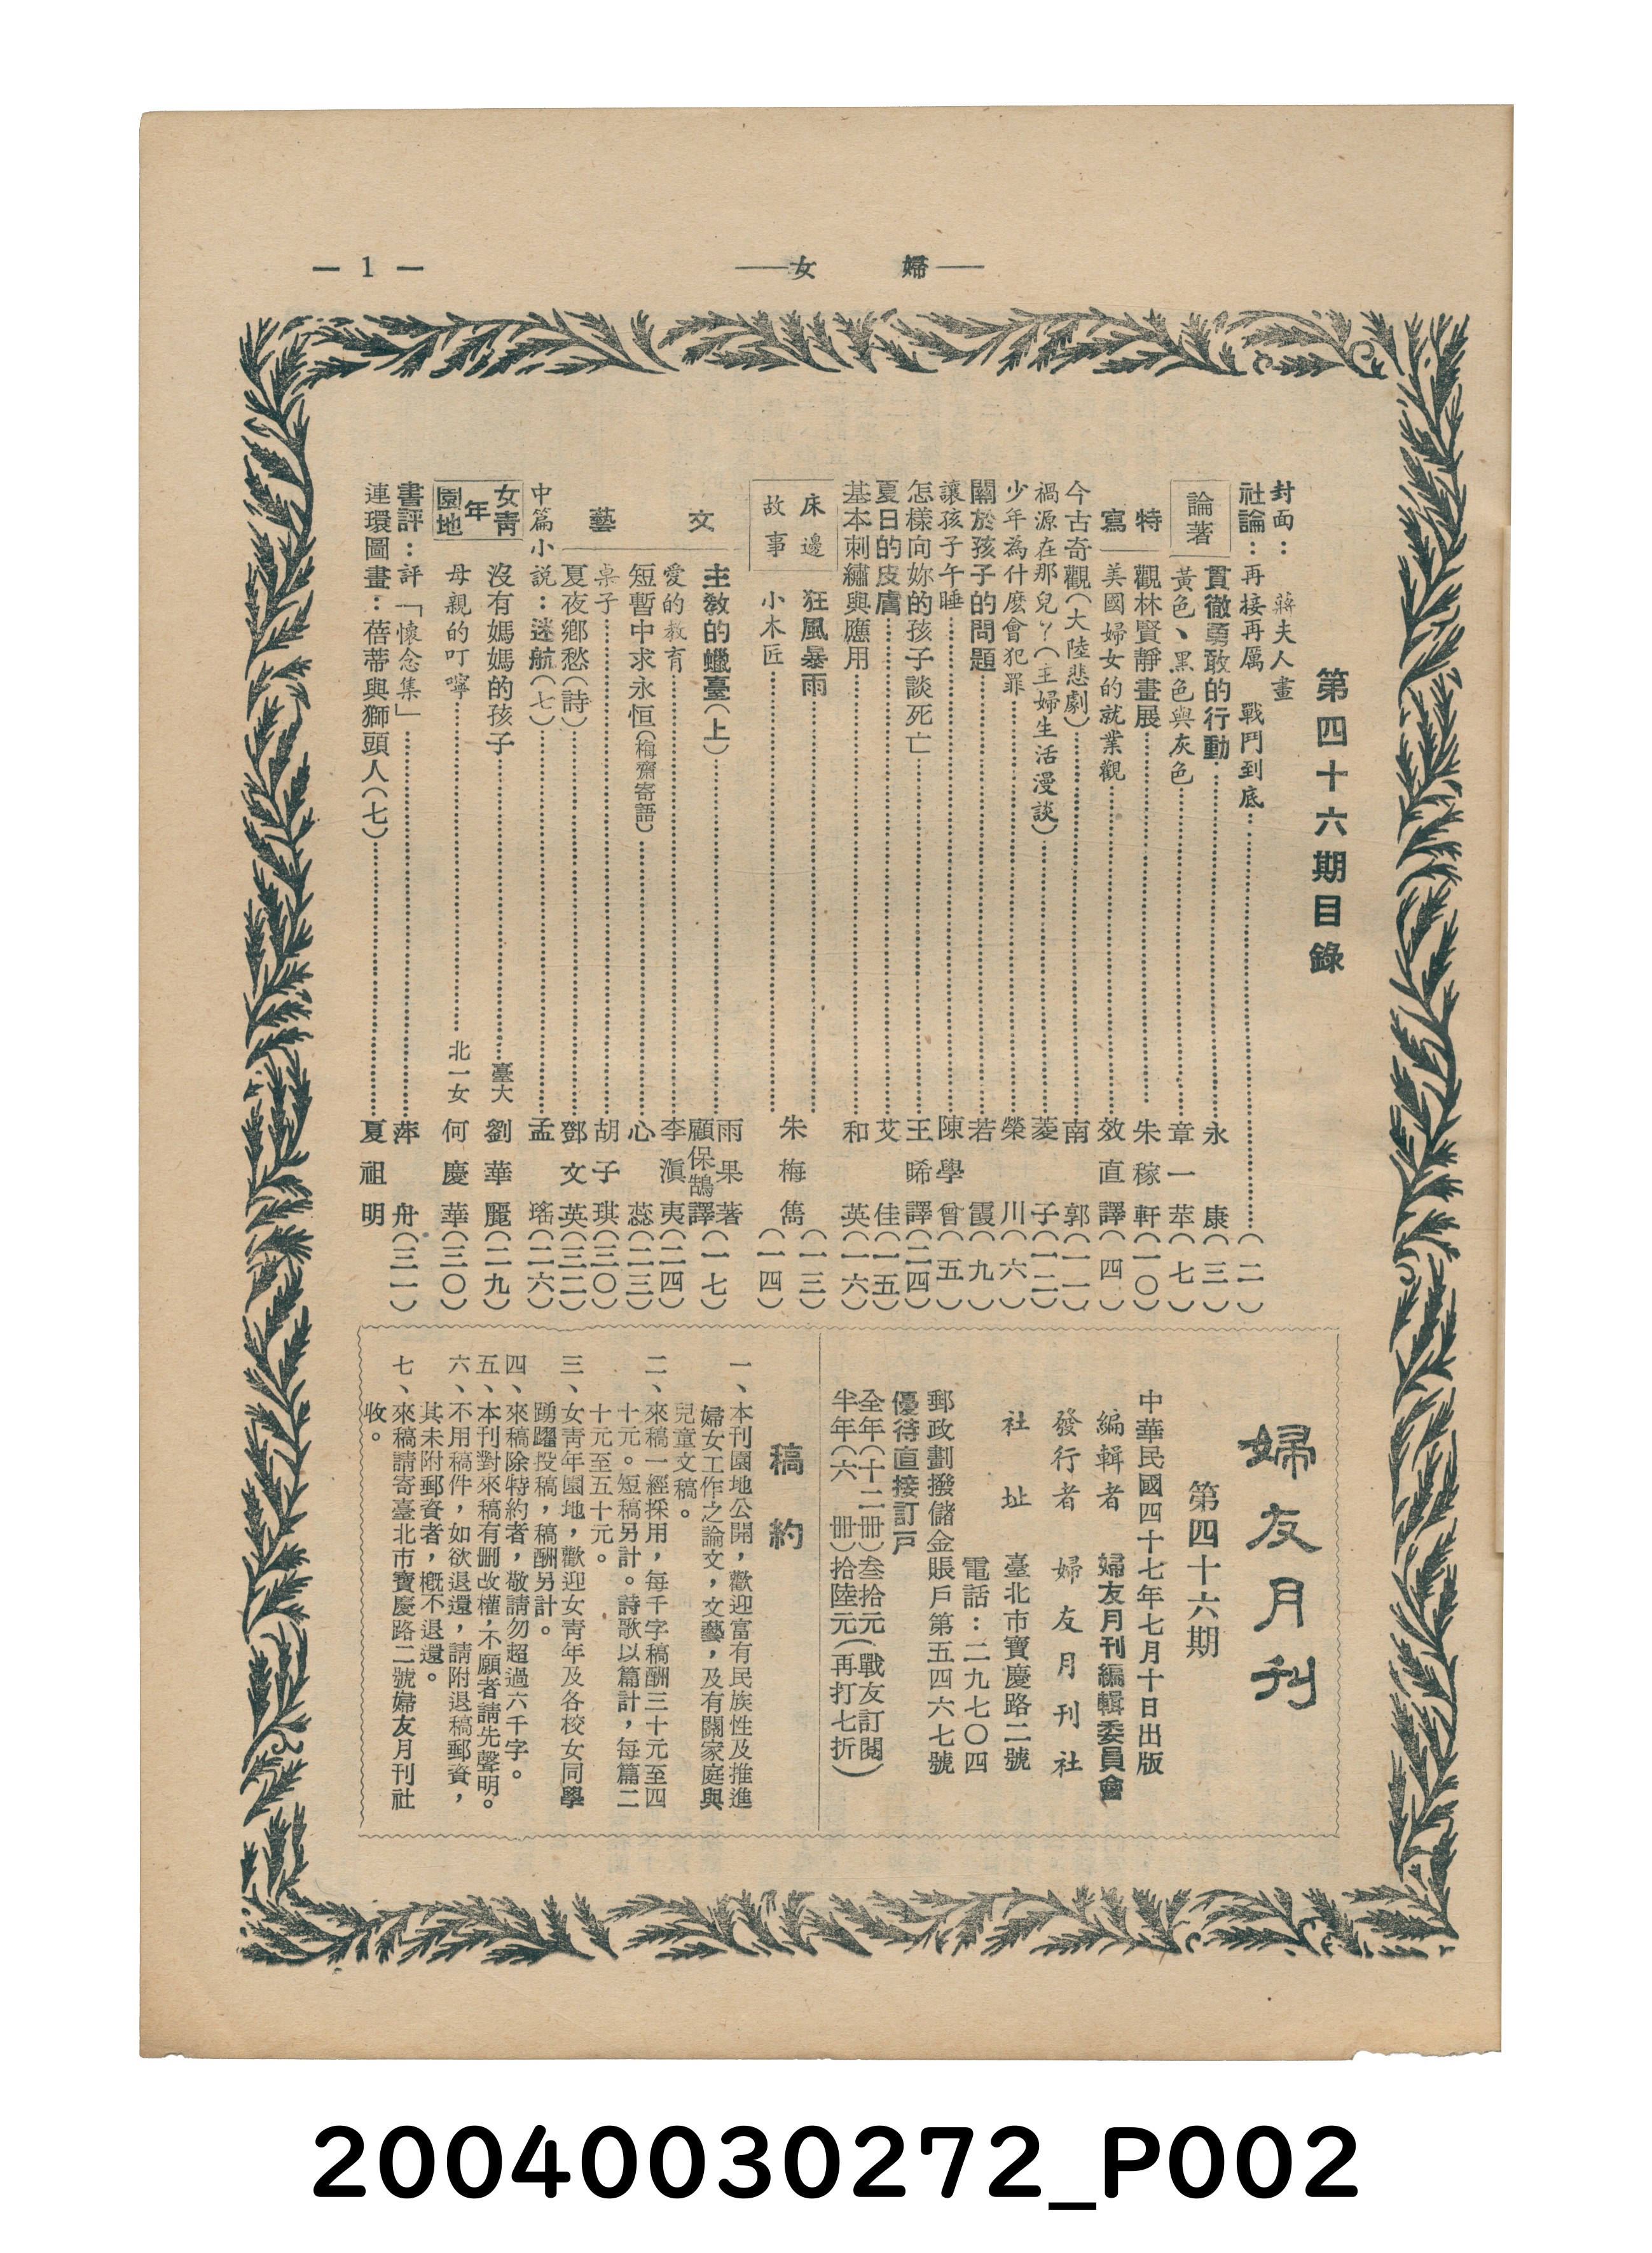 — 1 —
婦女
第四十六期目錄
封面：蔣夫人畫
社論：再接再厲　戰鬥到底……（二）
論著
貫徹勇敢的行動……永康（三）
黃色、黑色與灰色……章一苹（七）
特寫
觀林賢靜畫展……朱稼軒（一〇）
美國婦女的就業觀……效直譯（四）
今古奇觀（大陸悲劇）……南郭（一一）
禍源在那兒？（主婦生活漫談）……菱子（一二）
少年為什麼會犯罪……榮川（六）
關於孩子的問題……若霞（九）
讓孩子午睡……陳學曾（五）
怎樣向妳的孩子談死亡……王晞譯（二四）
夏日的皮膚……艾佳（一五）
基本刺繡與應用……和英（一六）
床邊故事
狂風暴雨……（一三）
朱梅雋
小木匠……（一四）
文藝
主教的蠟臺（上）……雨果著　顧保鵠譯（一七）
愛的教育……李滇夷（二四）
短暫中求永恒（梅齋寄語）……心蕊（二三）
桌子……胡子琪（三〇）
夏夜鄉愁（詩）……鄧文英（三二）
中篇小說：迷航（七）……孟瑤（二六）
女青年園地
沒有媽媽的孩子……臺大　劉華麗（二九）
母親的叮嚀……北一女　何慶華（三〇）
書評：評「懷念集」……萍舟（三一）
連環圖畫：蓓蒂與獅頭人（七）……夏祖明
婦友月刊
第四十六期
中華民國四十七年七月十日出版
編輯者　婦友月刊編輯委員會
發行者　婦友月刊社
社址　臺北市寶慶路二號
電話：二九七〇四
郵政劃撥儲金賬戶第五四六七號
優待直接訂戶
全年（十二冊）叁拾元（戰友訂閱）
半年（六　冊）拾陸元（再打七折）
稿約
一、本刊園地公開，歡迎富有民族性及推進
婦女工作之論文，文藝，及有關家庭與
兒童文稿。
二、來稿一經採用，每千字稿酬三十元至四
十元。短稿另計。詩歌以篇計，每篇二
十元至五十元。
三、女青年園地，歡迎女青年及各校女同學
踴躍投稿，稿酬另計。
四、來稿除特約者，敬請勿超過六千字。
五、本刊對來稿有刪改權，不願者請先聲明。
六、不用稿件，如欲退還，請附退稿郵資，
其未附郵資者，概不退還。
七、來稿請寄臺北市寶慶路二號婦友月刊社
收。
20040030272_P002